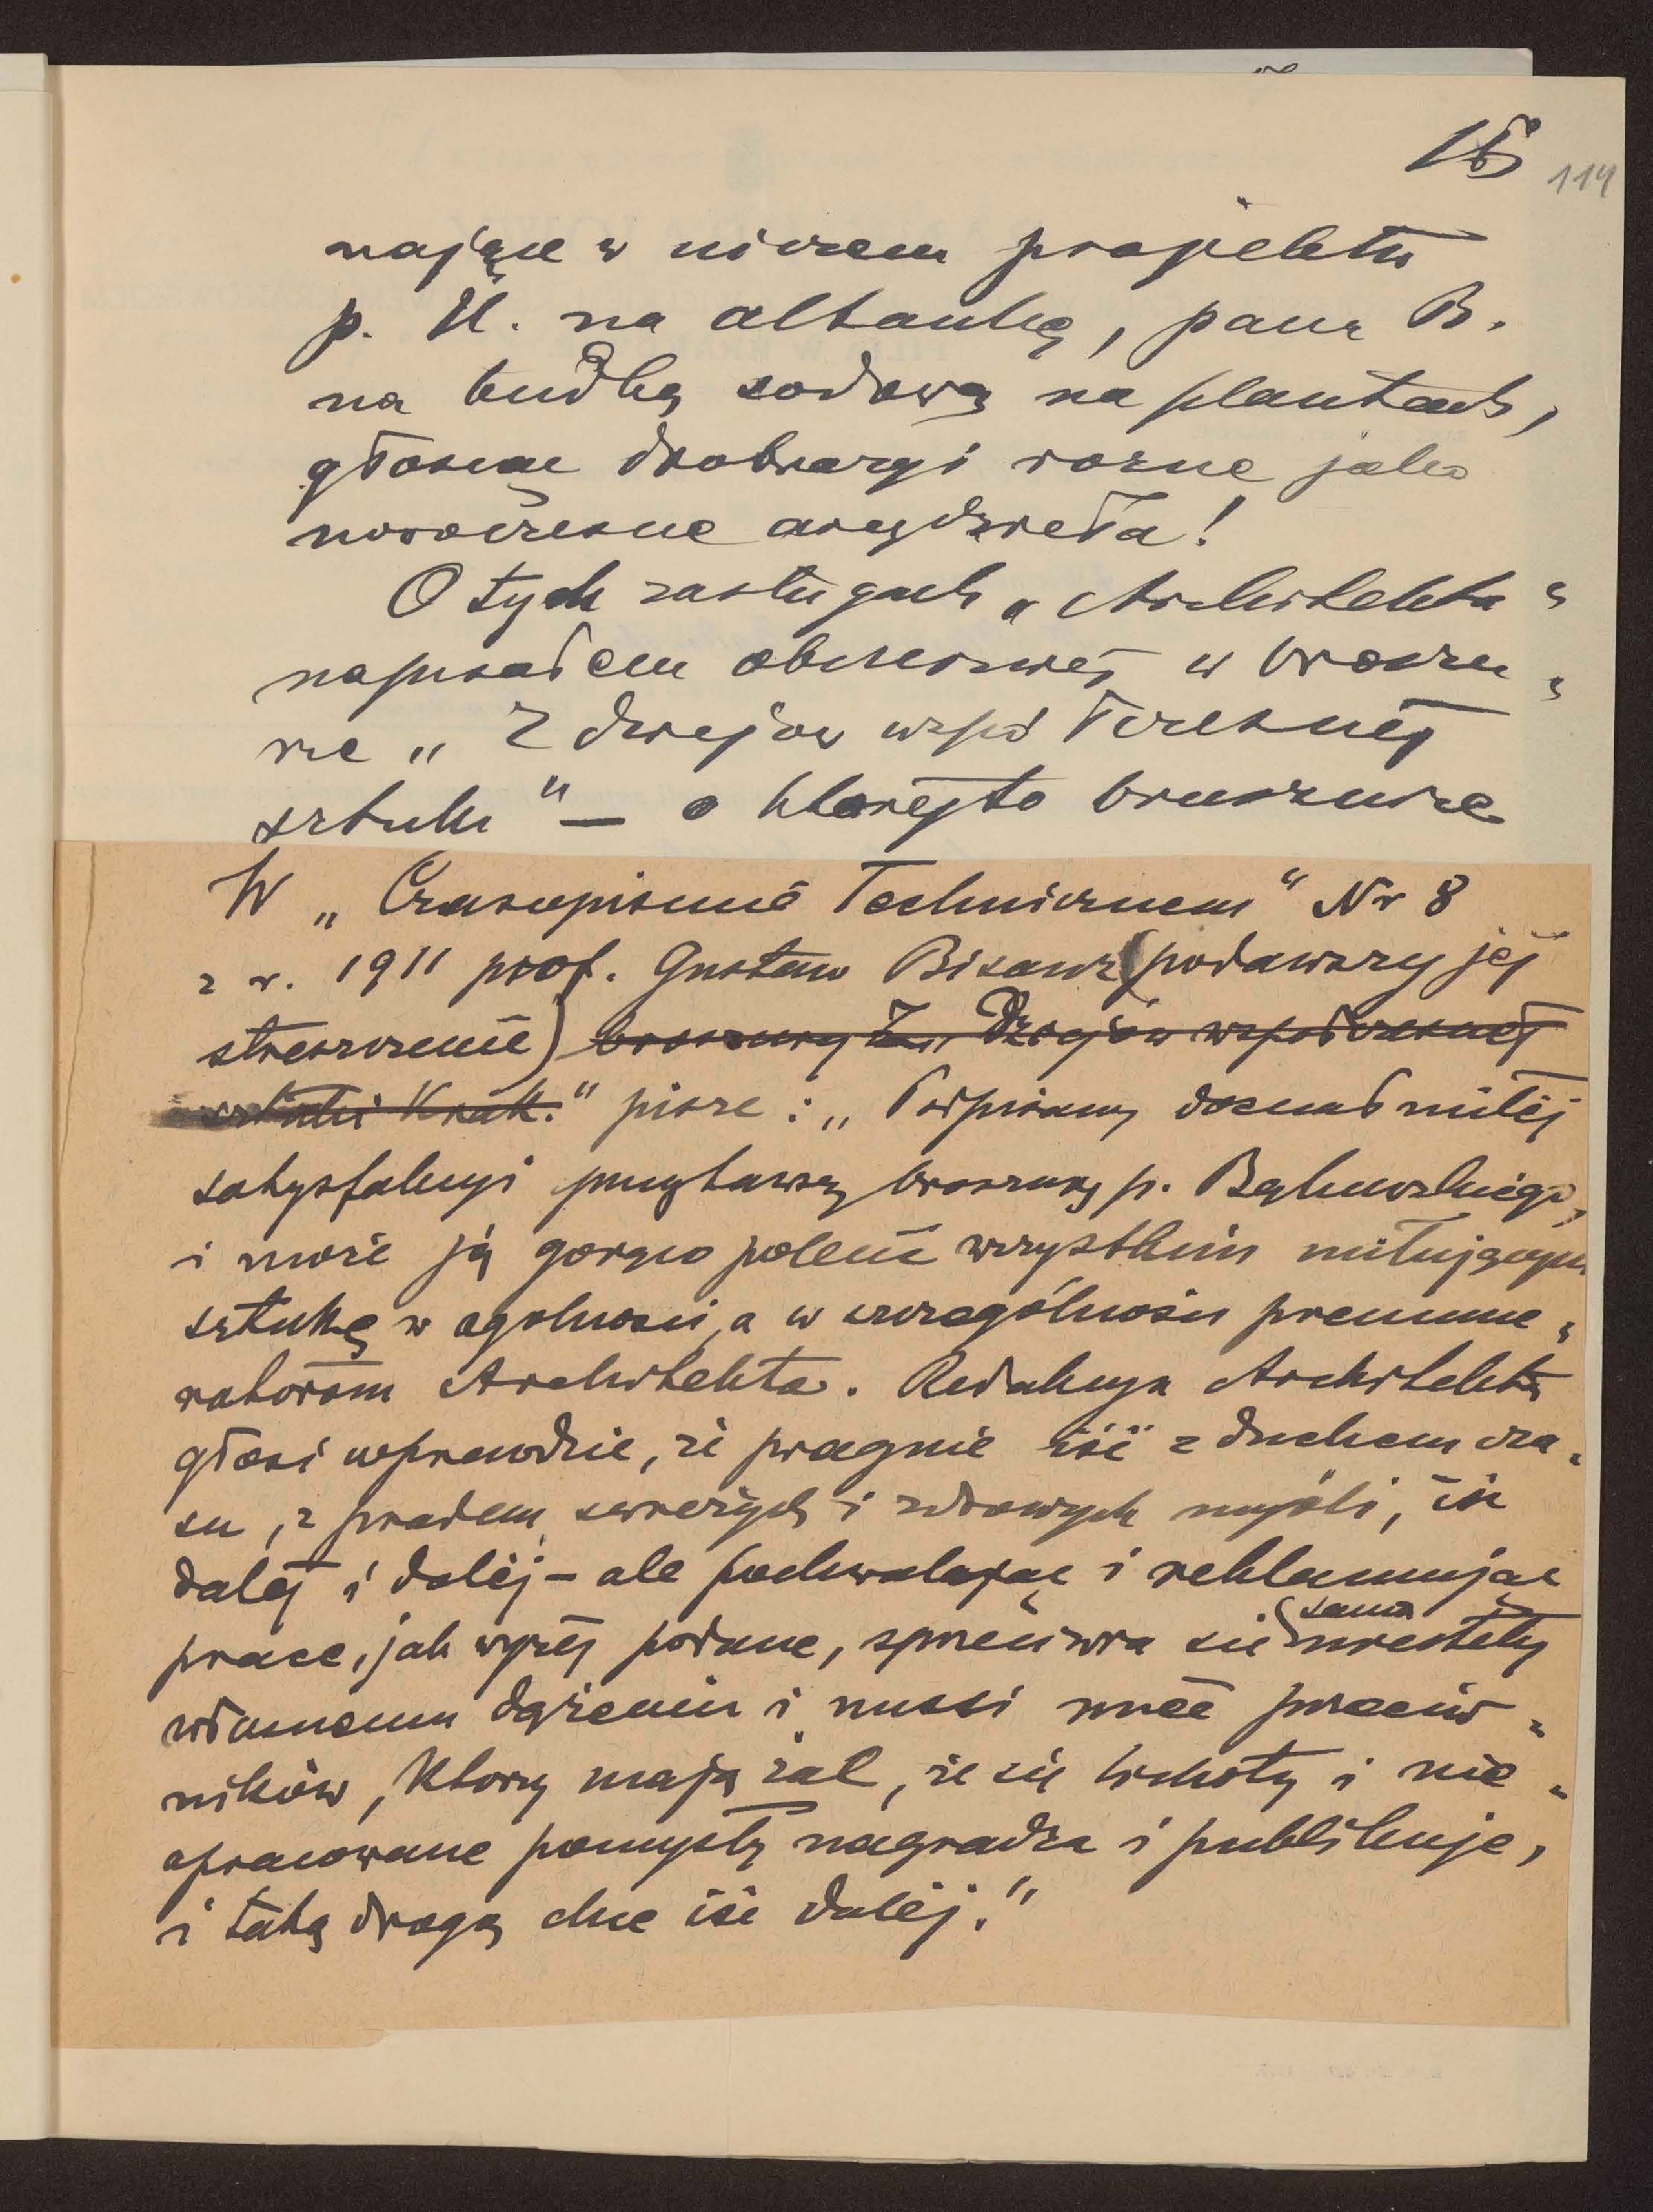 114
nające w niczem projektu
p. U. na altankę, pana B.
na budkę sodową na plantach,
głosząc drobiazgi rozne jako
nowoczesne arcydzieła!
O tych zasługach „Architekta"
napisałem obszerniej w broszu-
rze „Z dziejów współczesnej
sztuki" — o którejto broszurze
W „Czasopiśmie Technicznem" Nr 8
z r. 1911 prof. Gustaw Bisanz (podawszy jej
streszczenie) broszury Z „Dziejów współczesnej
sztuki Krak." pisze: „ doznał miłej
satysfakcyi przeczytawszy broszurę p. Bąkowskiego,
i może ją gorąco polecić wszystkim miłującym
sztukę w ogólności, a w szczególności prenume-
ratorom Architekta. Redakcya Architekta
głosi wprawdzie, że pragnie iść z duchem cza-
su, z prądem świeżych i zdrowych myśli, iść
dalej i dalej – ale pochwalając i reklamując
prace, jak wyżej podane, sprzeciwia się sama niestety
własnemu dążeniu i musi mieć przeciw-
ników, którzy mają żal, że się lichoty i nie-
opracowane pomysły nagradza i publikuje,
i taką drogą chce iść dalej."